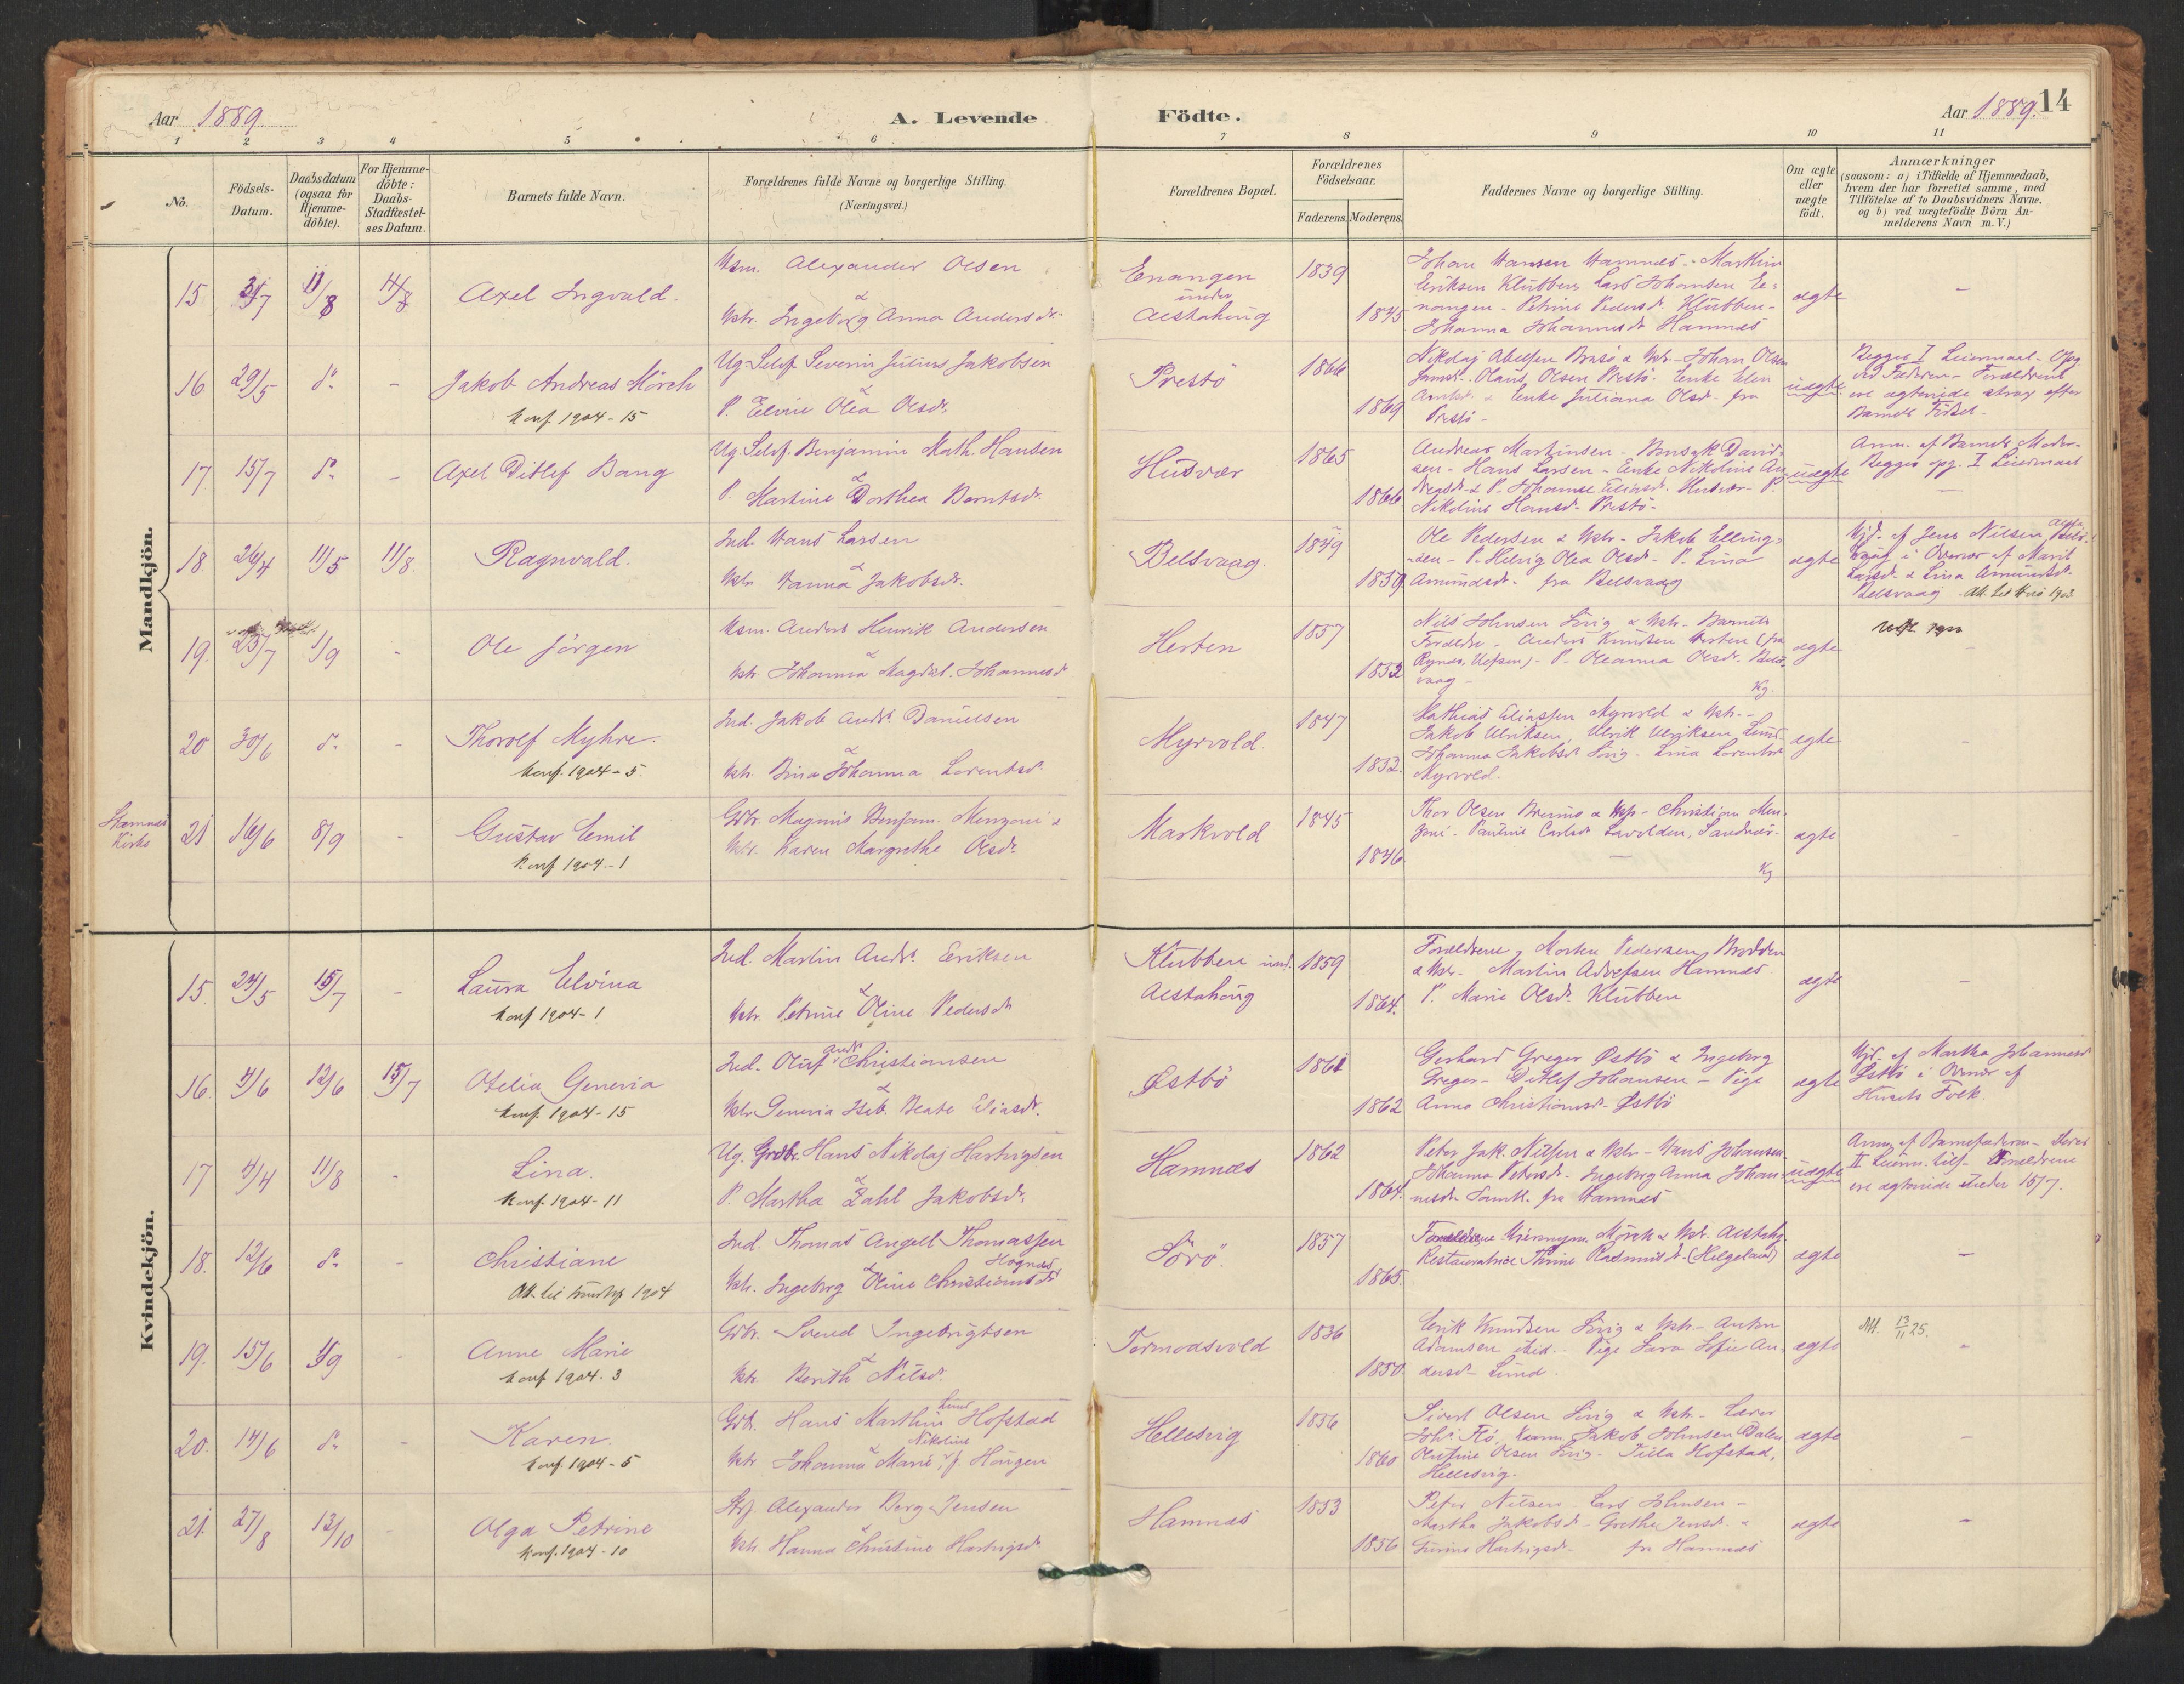 Aar 1889.
A. Levende Födte.
Aar 1889. 14
1 2 3 4 5 6 7 8 9 10 11
No.
Födsels-Datum.
Daabsdatum (ogsaa for Hjemme-döbte).
For Hjemme-döbte: Daabs-Stadfæstel-ses Datum.
Barnets fulde Navn.
Forældrenes fulde Navne og borgerlige Stilling.
(Næringsvei.)
Forældrenes Bopæl.
Forældrenes Födselsaar.
Faderens. Moderens.
Faddernes Navne og borgerlige Stilling.
Om ægte eller uægte födt.
Anmærkninger
(saasom: a) i Tilfælde af Hjemmedaab,
hvem der har forrettet samme, med
Tilföielse af to Daabsvidners Navne.
og b) ved uægtefödte Börn An-
melderens Navn m. V.)
Mandkjön.
15 31/7 11/8 14/8 Axel Ingvald.
Hsm. Alexander Olsen
&
Hstr. Ingeborg Anna Andersdr.
Enangen
under
Alstahaug
1839
1845
Johan Hansen Hamnæs - Marthin
Eriksen Klubben Lars Johansen E-
nangen - Petrine Pedersdr. Klubben -
Johanna Johannesdr Hamnæs
ægte
-
16 29/5 do - Jakob Andreas Mörch
Konf. 1904-15
Ug. Self. Severin Julius Jakobsen
&
P. Elvine Olea Olsdr.
Prestö
1866
1869
Nikolaj Abelsen Brasö & Hstr. - Johan Olsen
Olaus Olsen Prestö. Enke Elen
& Enke Juliana Olsd. fra
Prestö -
uægte
Begges I Leiermaal - Opg.
ved Faderen - Forældrene
ere ægteviede strax efter
Barnets Födsel -
17 15/7 do - Axel Ditlef Bang
Ug. Self. Benjamin Math. Hansen
&
P. Martine Dorthea Berntsdr.
Husvær
1865
1866
Andreas Martinsen - David-
sen - Hans Larsen - Enke Nikoline An-
dreasdr & P. Johanna Eliasdr. Husvær - P.
Nikoline Hansdr. Prestö -
uægte
Anm. af Barnets Moder -
Begges opg. I Leiermaal
-
18 26/4 11/5 11/8. Ragnvald.
Ind. Hans Larsen
&
Hstr Hanna Jakobsdr.
Belsvaag.
1849
1859
Ole Pedersen & Hstr - Jakob Elling-
sen - P. Helvig Olea Olsdr - P. Lina
Amundsdr - fra Belsvaag
ægte
Hjd. af Jens Nilsen, Bels-
vaag i Overvær af Marit
Larsdr. & Lina Amundsdr.
Belsvaag
19. 23/7 1/9 - Ole Jörgen
Hsm. Anders Henrik Andersen
&
Hstr Johanna Magdal. Johannesdr
Herten
1857
1852
Nils Johnsen Sörig & Hstr - Barnets
Forældre - Anders Knudsen Herten (fra
Rynes, Vefsen) - P. Oleanna Olsdr. Bels-
vaag -
Kg.
ægte
-
20 30/6 do - Thorolf Myhre.
Konf. 1904-5.
Ind. Jakob Andr. Danielsen
&
Hstr. Bina Johanna Lorentsdr.
Myrvold.
1847
1852.
Mathias Eliassen Myrvold & Hstr. -
Jakob Ulriksen, Ulrik Ulriksen Lund.
Johanna Jakobsdr Sörig - Lina Lorentsdr
Myrvold.
ægte
-
Stamnæs
Kirke
21 16/6 8/9 - Gustav Emil
Konf 1904-1
Grbr. Magnus Benjam. Menzoni &
Hstr. Karen Margrethe Olsdr.
Markvold
1845
1846
Thor Olsen & Hstr - Christian Men-
zoni - Pauline Carlsdr
Kg
ægte
-
Kvindekjön.
15. 24/5 15/7 - Laura Elvina
Konf 1904-1
Ind. Martin Andr. Eriksen
&
Hstr. Petrine Oline Pedersdr
Klubben und.
Alstahoug
1859
1864.
Forældrene, Morten Pedersen, Brodden
& Hstr - Martin Adolfsen Hamnæs
P. Marie Olsdr. Klubben
ægte
-
16. 4/6 12/6 15/7 Otelia Generia
Konf. 1904-15
Ind. Oluf Andr. Christiansen
&
Hstr Generia Iseb. Beate Eliasdr.
Østbö
1861
1862
Gerhard Greger Østbö & Ingeborg
Greger - Ditlef Johansen - Pige
Anna Christiansdr - Østbö
ægte
Hjd. af Martha Johannesdr
Østbö i Overvær af
Husets Folk.
17 4/4 11/8 - Lina.
Konf. 1904-11
Ug. Grdbr. Hans Nikolaj Hartvigsen
&
P. Martha Zahl Jakobsdr.
Hamnæs
1862
1864.
Peter Jak. Nilsen & Hstr - Hans Johansen
Johanna Petersdr. Ingeborg Anna Johan-
nesdr. Samtl. fra Hamnæs
uægte
Anm. af Barnefaderen - Deres
II Leierm. tils. - Forældrene
ere ægteviede siden 15/7.
18. 12/6 do - Christiane
Ind. Thomas Angell Thomassen
Högnæs
&
Hstr. Ingeborg Oline Christiansdr
Sörö.
1857
1865.
Forældrene Hieronym. Mörch & Hstr. Alstahg.
Restauratrice Thrine Rasmusdr. (Helgeland)
ægte
-
19. 15/6 1/9 - Anne Marie
Konf 1904-3
Grbr. Svend Ingebrigtsen
&
Hstr. Berith Nilsdr.
Tormodsvold
1836
1850.
Erik Knudsen Sörig & Hstr - Anton
Adamsen ibid. - Pige Sara Sofie An-
dersdr Lund.
ægte
Att. 13/11 25.
-
20. 14/6 do - Karen.
Konf. 1904-5
Grbr. Hans Marthin Lund Hofstad
Nikoline
&
Hstr Johanna Marie, f. Haugen
Hellesvig
1856
1860
Sivert Olsen Sörig & Hstr - Lærer
Joh. Flö, Jakob Johnsen Dalen
Olufine Olsen Sörig - Tilla Hofstad,
Hellesvig.
ægte
-
21. 27/8 13/10 - Olga Petrine
Konf. 1904-10
Alexander Berg Jensen
&
Hstr. Hanna Christine Hartvigsdr
Hamnæs
1853
1856
Peter Nilsen - Lars Johnsen -
Martha Jakobsdr - Grethe Jensdr. &
Hartvigsdr - fra Hamnæs
ægte
-